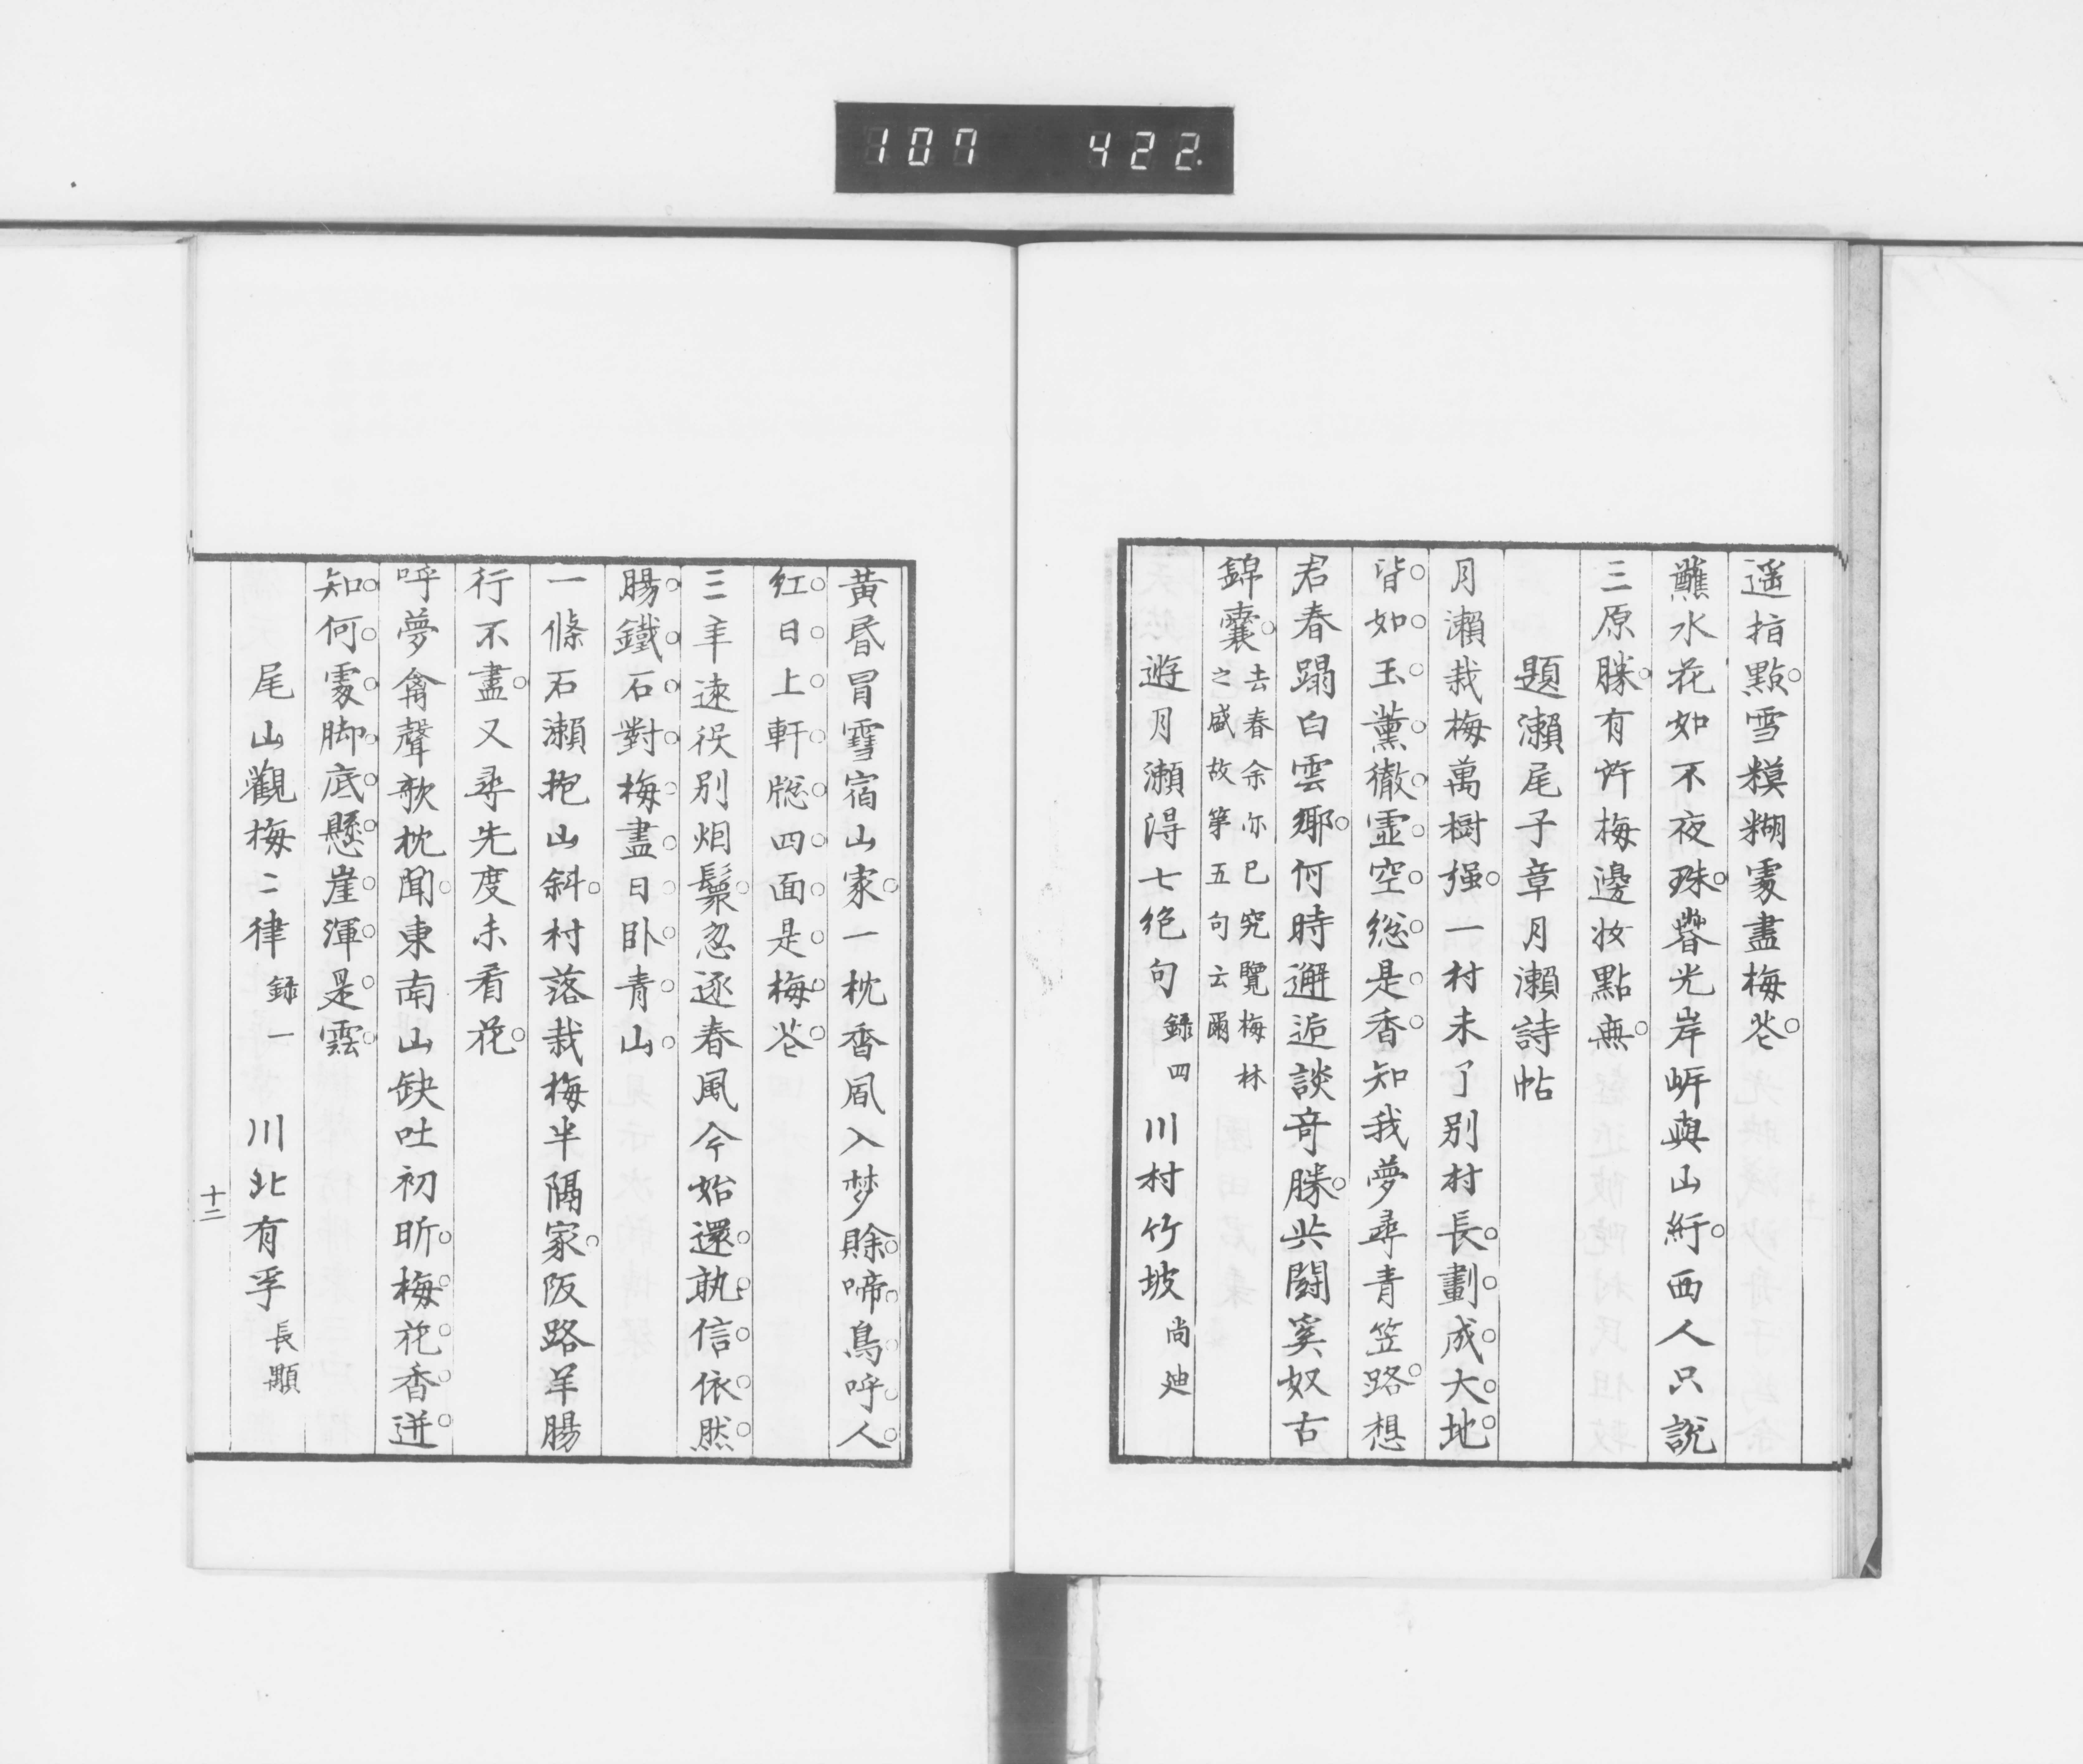 107 422
遥指點雪糢糊處盡梅花
蘸水花如不夜珠暮光岸㟁與山紆西人只說
三原勝有許梅邊妝點無
題瀨尾子章月瀨詩帖
月瀨栽梅萬樹強一村未了別村長劃成大地
皆如玉薰徹靈空総是香知我夢尋青笠路想
君春蹋白雲鄉何時邂逅談奇勝共鬪奚奴古
錦囊去春余亦已究覽梅林
之盛故第五句云爾
遊月瀨得七絶句錄四 川村竹坡尚迪
黃昏冒雪宿山家一枕香風入梦賒啼鳥呼人
紅日上軒牎四面是梅花
三年遠役別烟鬟忽逐春風今始還孰信依然
腸鐵石對梅盡日卧青山
一條石瀨抱山斜村落栽梅半隔家阪路羊腸
行不盡又尋先度未看花
呼夢禽聲欹枕聞東南山缺吐初昕梅花香迸
知何處脚底懸崖渾是雲
尾山觀梅二律錄一 川北有孚長顒
十二